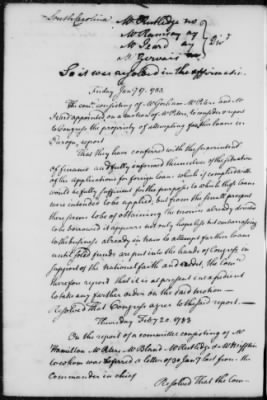 South Carolina
Mr Rutledge no
Mr Ramsay ay
Mr Izard ay
Mr Gervais no
Divd
So it was resolved in the affirmative.
Friday Jany 1783
The committee consisting of Mr Gorham Mr Peters and Mr
Izard appointed on a motion of Mr Peters, to consider & report
to Congress the propriety of attempting farther loans in
Europe, report
That they have conferred with the superintend
of finance and fully informed themselves of the situation
of the applications for foreign loans which if completed
would be fully sufficient for the purposes to which those loans
were intended to be applied, but from the small prospect
there seems to be of obtaining the monies already
to be borrowed it appears not only hopeless but embarrassing
to the business already in train to attempt farther loans
until solid funds are put into the hands of Congress in
support of the national faith and credit, the Come
therefore report that it is at present inexpedient
to take any further order on the said motion
Resolved that Congress agree to the said report
Thursday Feby 20. 1783
On the report of a committee consisting of Mr
Hamilton Mr Peters Mr Bland Mr Rutledge & Mr Mifflin
to whom was referred a letter of 30 Jany last from the
Commander in chief
Resolved That the Com-